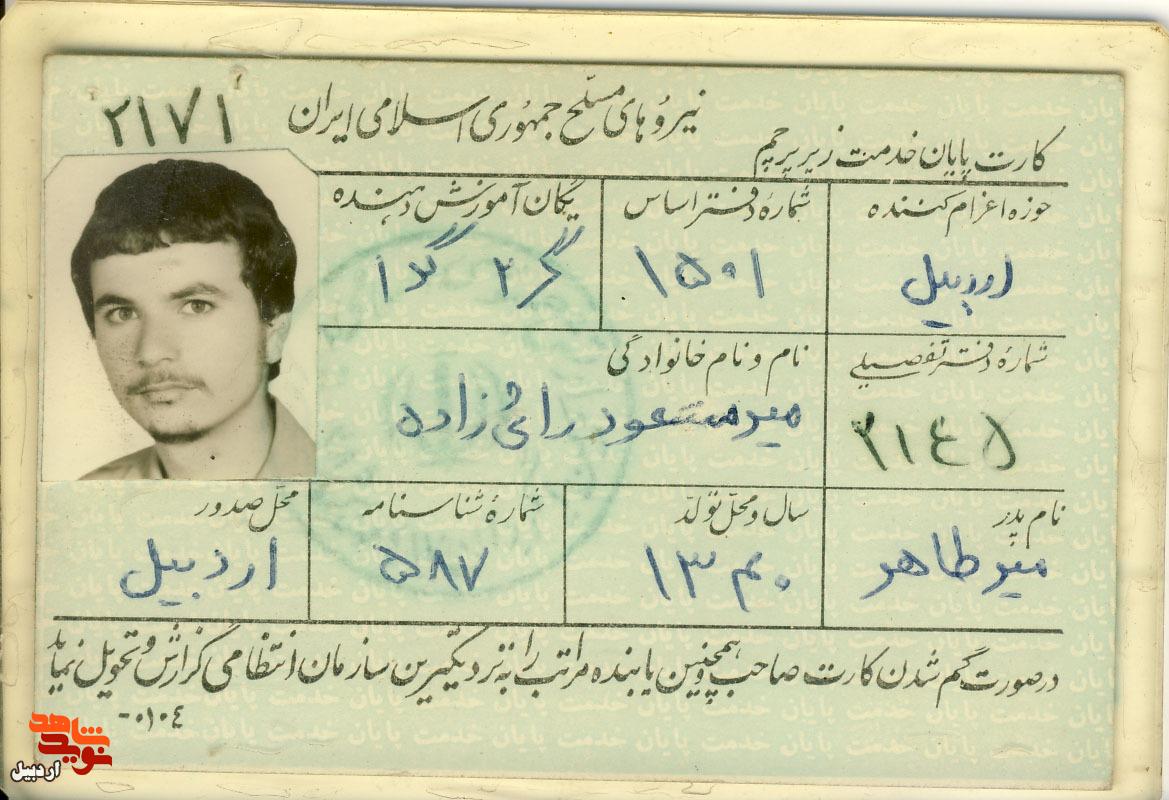 ۲۱۷۱
نیروهای مسلح جمهوری اسلامی ایران
کارت پایان خدمت زیر پرچم
حوزه اعزام کننده
شمارهٔ دفتر اساس
یگان آموزش دهنده
اردبیل
۱۵۰۱
گر ۲
شمارهٔ دفتر تفصیلی
نام و نام خانوادگی
۲۱٤۵
میرمسعود رائی زاده
نام پدر
سال و محل تولد
شمارهٔ شناسنامه
محل صدور
میر طاهر
۱۳۴۰
۵۸۷
اردبیل
درصورت گم شدن کارت صاحب و همچنین یابنده مراتب را به نزدیکترین سازمان انتظامی گزارش و تحویل نماید
۰۱۰٤-
نوید شاهد
اردبیل